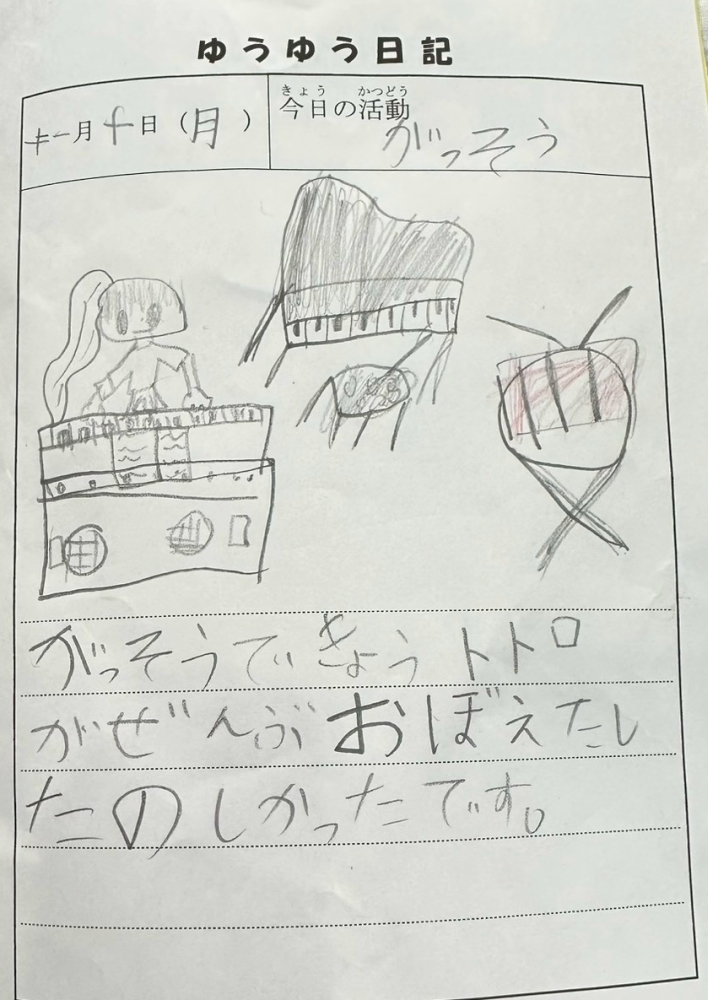 ゆうゆう日記
十一月十日(月)
きょう かつどう
今日の活動
がっそう
がっそうできょうトトロ
がぜんぶおぼえたし
たのしかったです。